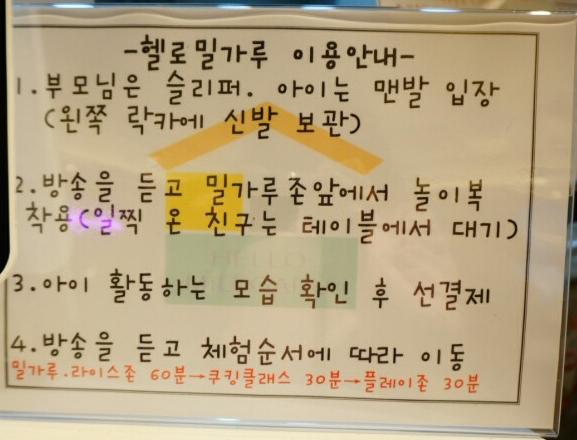 -헬로밀가루 이용안내-
1.부모님은 슬리퍼. 아이는 맨발 입장
(왼쪽 락카에 신발 보관)
2.방송을 듣고 밀가루존앞에서 놀이복
착용(일찍 온 친구는 테이블에서 대기)
HELLO
3.아이 활동하는 모습 확인 후 선결제
4.방송을 듣고 체험순서에 따라 이동
밀가루.라이스존 60분→쿠킹클래스 30분→플레이존 30분